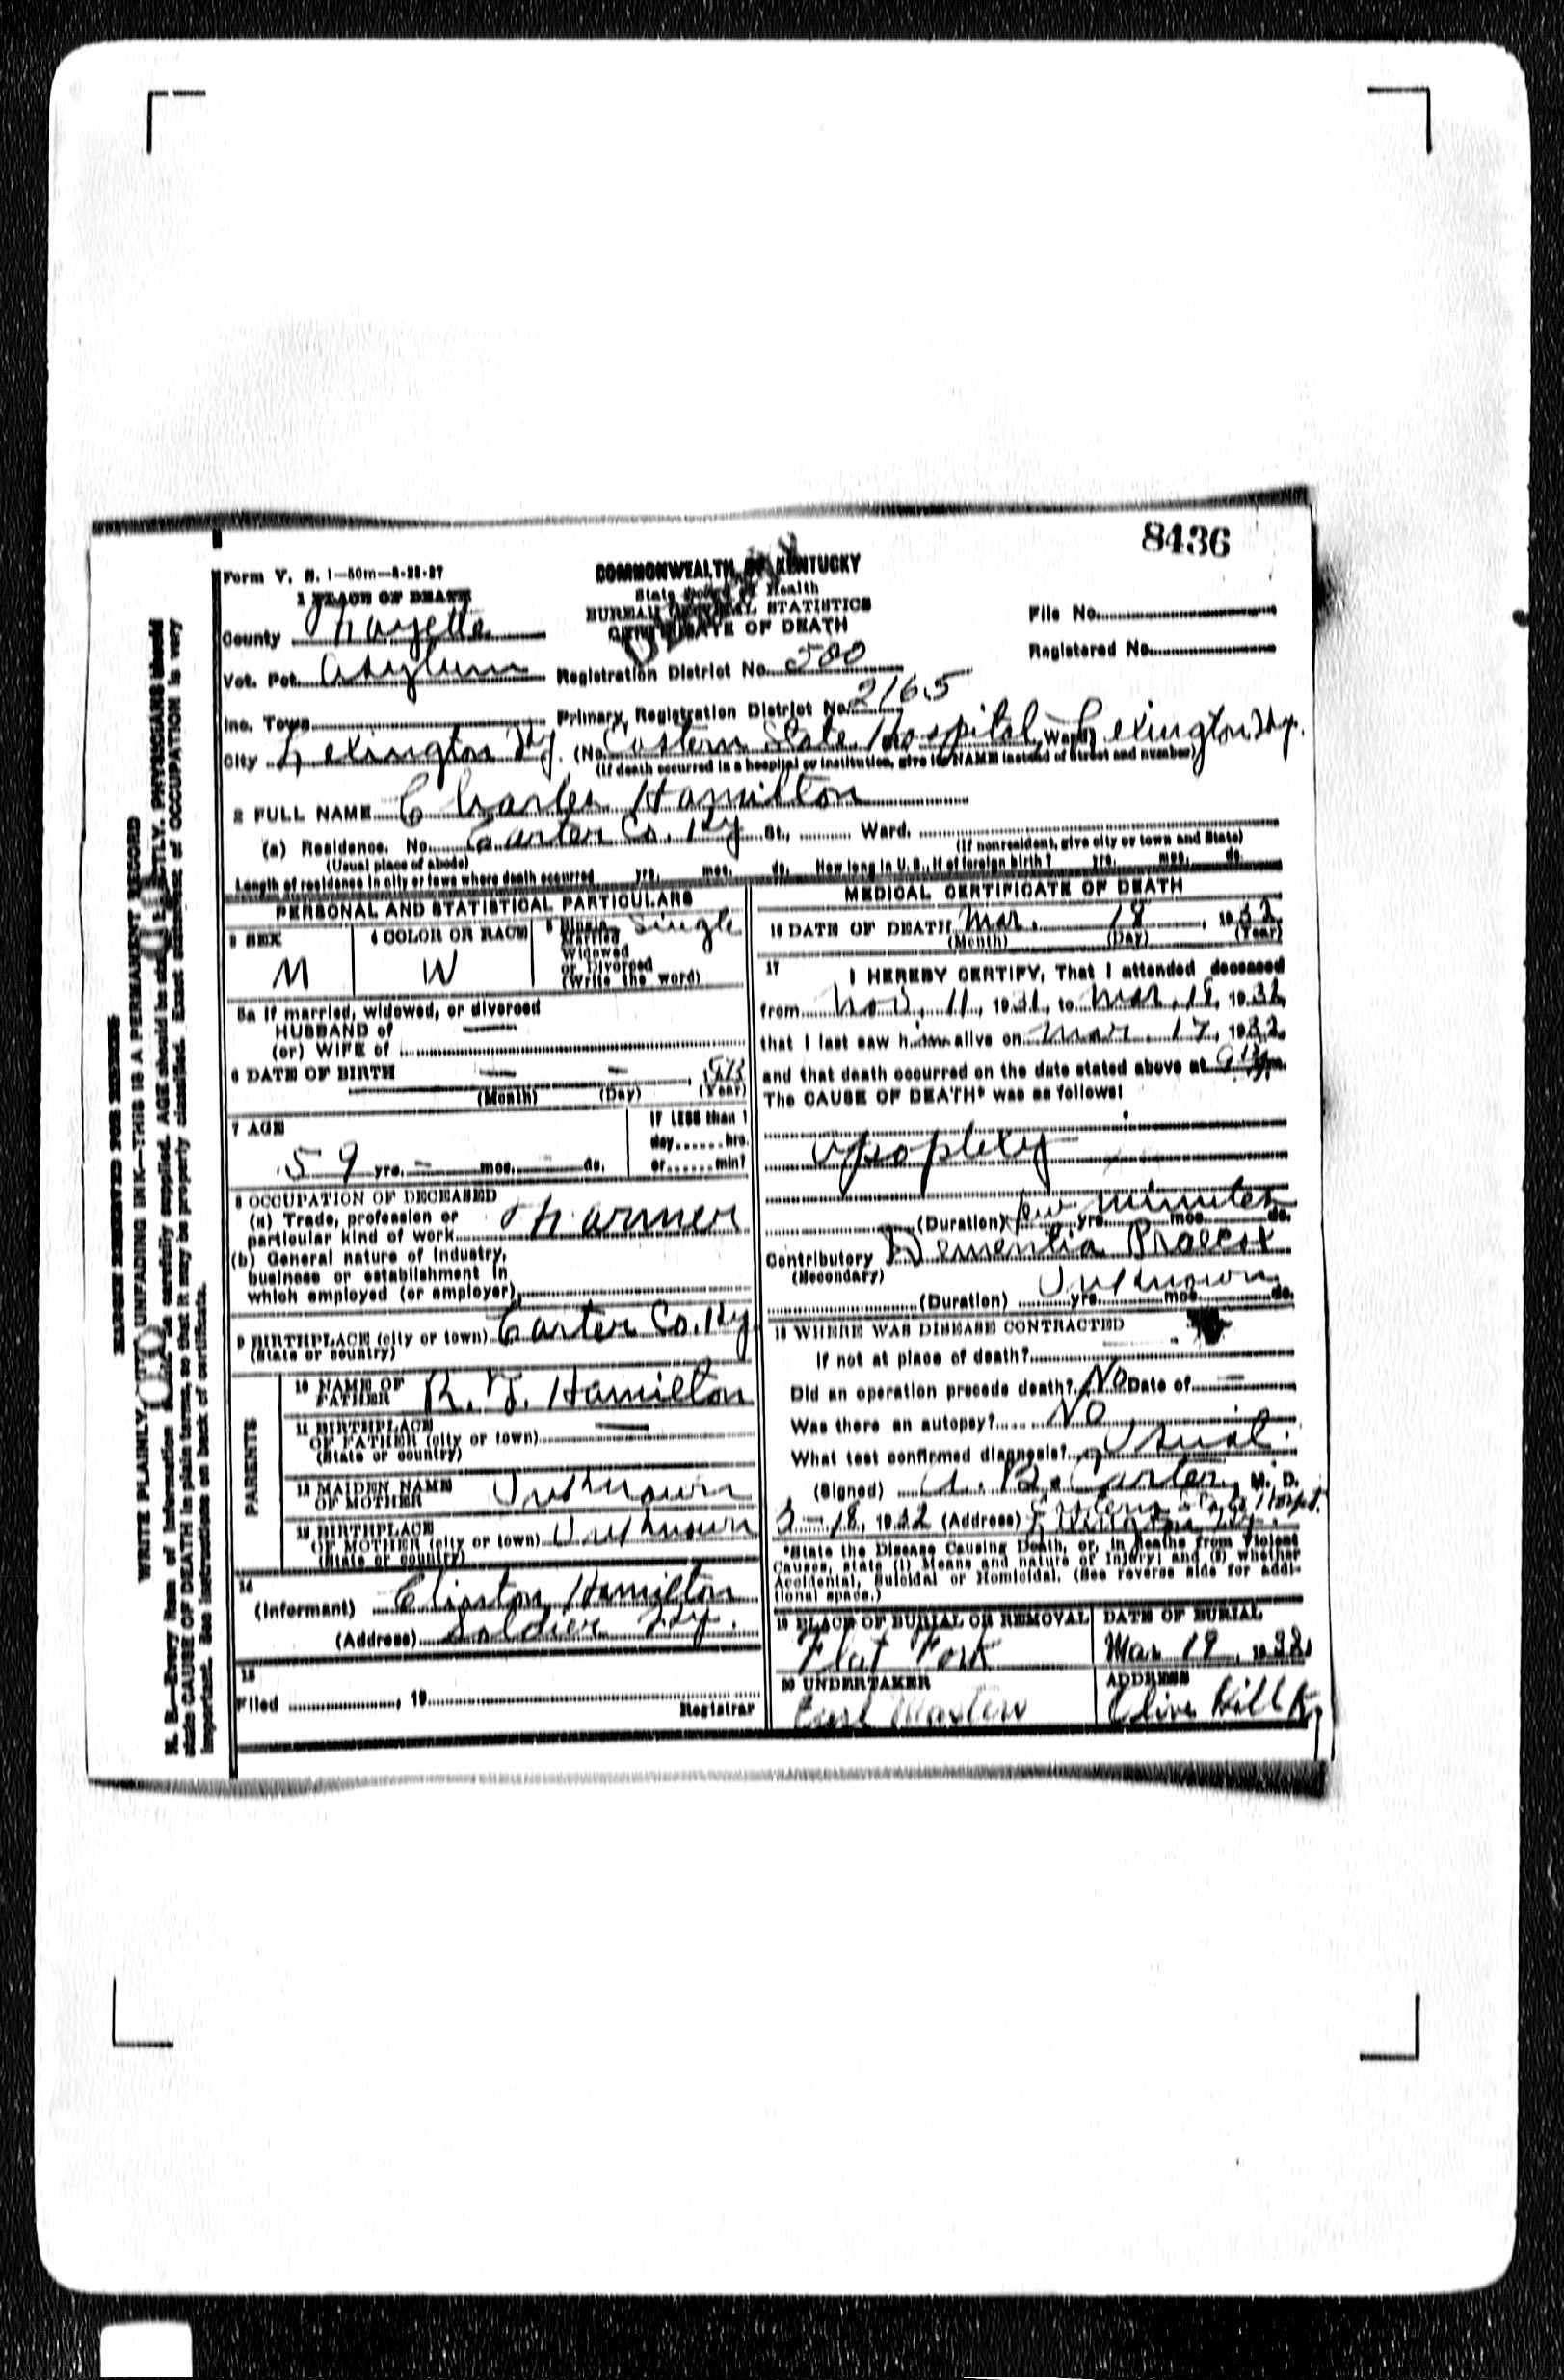 8436
Form V. S. 1—50m—4-28-27
COMMONWEALTH OF KENTUCKY
State Board of Health
BUREAU OF VITAL STATISTICS
CERTIFICATE OF DEATH
1 PLACE OF DEATH
County Fayette
File No.
Registered No.
Vot. Pct. Asylum Registration District No. 580
Inc. Town Primary Registration District No. 2165
City Lexington Ky. (No. Eastern State Hospital Ward) Lexington Ky.
(If death occurred in a hospital or institution, give its NAME instead of street and number)
2 FULL NAME Charles Hamilton
(a) Residence. No. Carter Co. Ky St., Ward.
(Usual place of abode) (If nonresident, give city or town and State)
Length of residence in city or town where death occurred yrs. mos. ds. How long in U. S., if of foreign birth? yrs. mos. ds.
PERSONAL AND STATISTICAL PARTICULARS
3 SEX M
4 COLOR OR RACE W
5 Single Married Widowed or Divorced (Write the word) Single
5a If married, widowed, or divorced
HUSBAND of
(or) WIFE of —
6 DATE OF BIRTH — —
(Month) (Day) (Year)
7 AGE
59 yrs. — mos. — ds.
IF LESS than 1
day hrs.
or min?
8 OCCUPATION OF DECEASED
(a) Trade, profession or
particular kind of work Farmer
(b) General nature of industry,
business or establishment in
which employed (or employer)
9 BIRTHPLACE (city or town) Carter Co. Ky
(State or country)
PARENTS
10 NAME OF FATHER R. F. Hamilton
11 BIRTHPLACE
OF FATHER (city or town) —
(State or country)
12 MAIDEN NAME
OF MOTHER Unknown
13 BIRTHPLACE
OF MOTHER (city or town) Unknown
(State or country)
14
(Informant) Hamilton
(Address) Soldier Ky.
15
Filed , 19
Registrar
MEDICAL CERTIFICATE OF DEATH
16 DATE OF DEATH Mar. 18, 1932
(Month) (Day) (Year)
17
I HEREBY CERTIFY, That I attended deceased
from Nov. 11, 1931, to Mar. 18, 1932,
that I last saw him alive on Mar 17, 1932,
and that death occurred on the date stated above at m.
The CAUSE OF DEATH* was as follows:
Apoplexy
(Duration) few minutes yrs. mos. ds.
Contributory Dementia Praecox
(Secondary)
(Duration) Unknown yrs. mos. ds.
18 WHERE WAS DISEASE CONTRACTED
If not at place of death?
Did an operation precede death? No Date of —
Was there an autopsy? No
What test confirmed diagnosis? Usual.
(Signed) A. B. Carter, M. D.
3-18, 1932 (Address) Eastern State Hospt.
Lexington Ky.
*State the Disease Causing Death, or, in deaths from Violent
Causes, state (1) Means and nature of Injury; and (2) whether
Accidental, Suicidal or Homicidal. (See reverse side for addi-
tional space.)
19 PLACE OF BURIAL OR REMOVAL
Flat Fork
DATE OF BURIAL
Mar 19, 1932
20 UNDERTAKER
Earl
ADDRESS
Olive Hill Ky
MARGIN RESERVED FOR BINDING
WRITE PLAINLY, WITH UNFADING INK—THIS IS A PERMANENT RECORD
N. B.—Every item of information should be carefully supplied. AGE should be stated EXACTLY. PHYSICIANS should
state CAUSE OF DEATH in plain terms, so that it may be properly classified. Exact statement of OCCUPATION is very
important. See instructions on back of certificate.